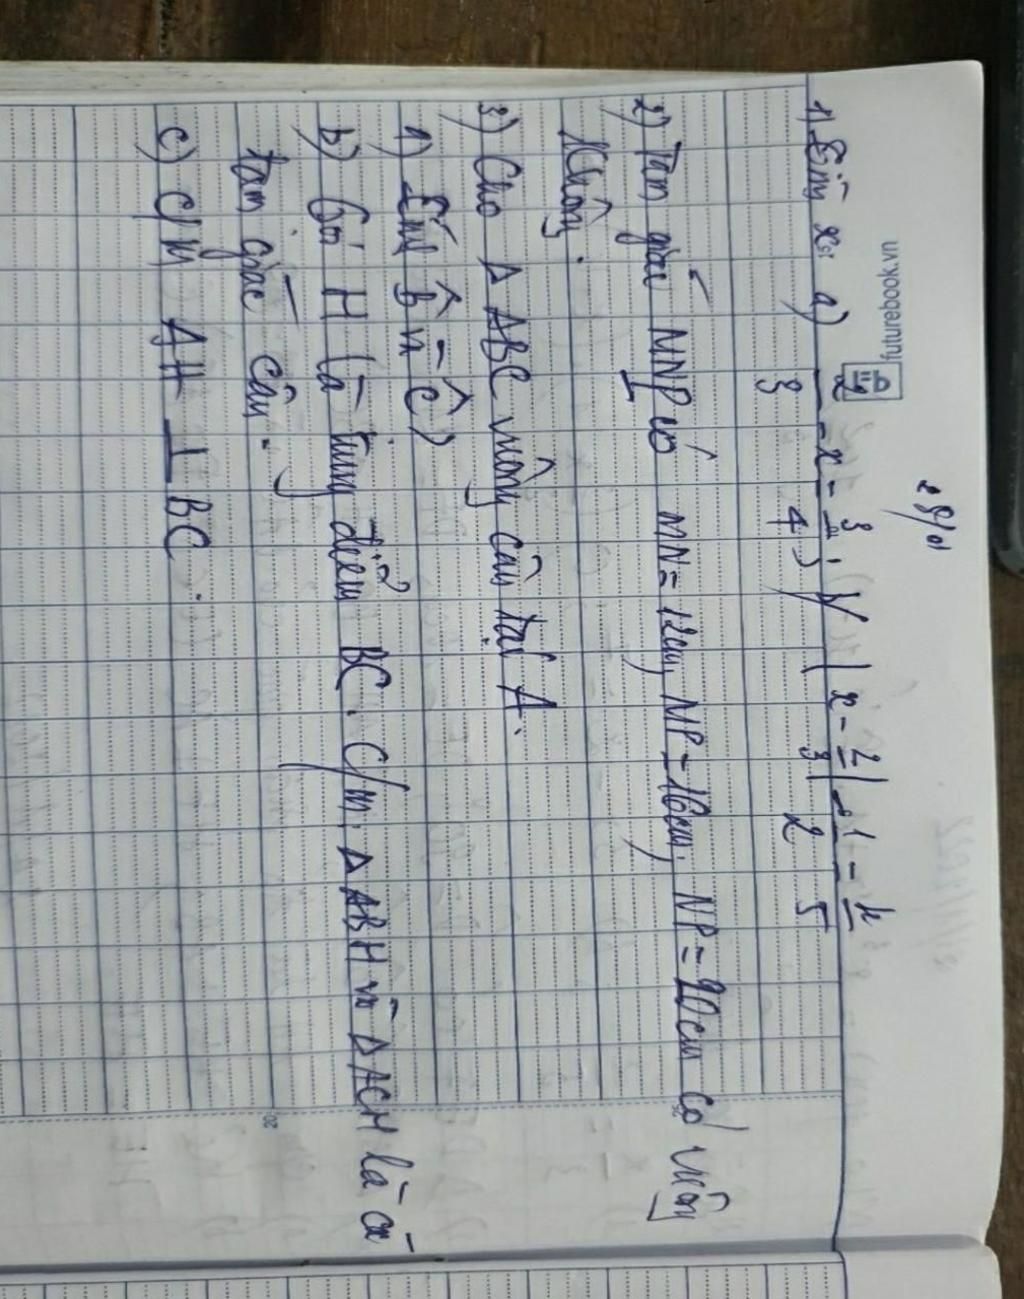 28/01
futurebook.vn
1) Tìm x: a) 2/3 - x = 3/4; b) |x - 2/3| - 1/2 = 4/5
2) Tam giác MNP có MN = 12cm, MP = 16cm, NP = 20cm có vuông
không.
3) Cho Δ ABC vuông cân tại A.
1) Tính B̂ và Ĉ)
b) Gọi H là trung điểm BC. C/m: Δ ABH và Δ ACH là các
tam giác cân.
c) C/m AH ⊥ BC.
20